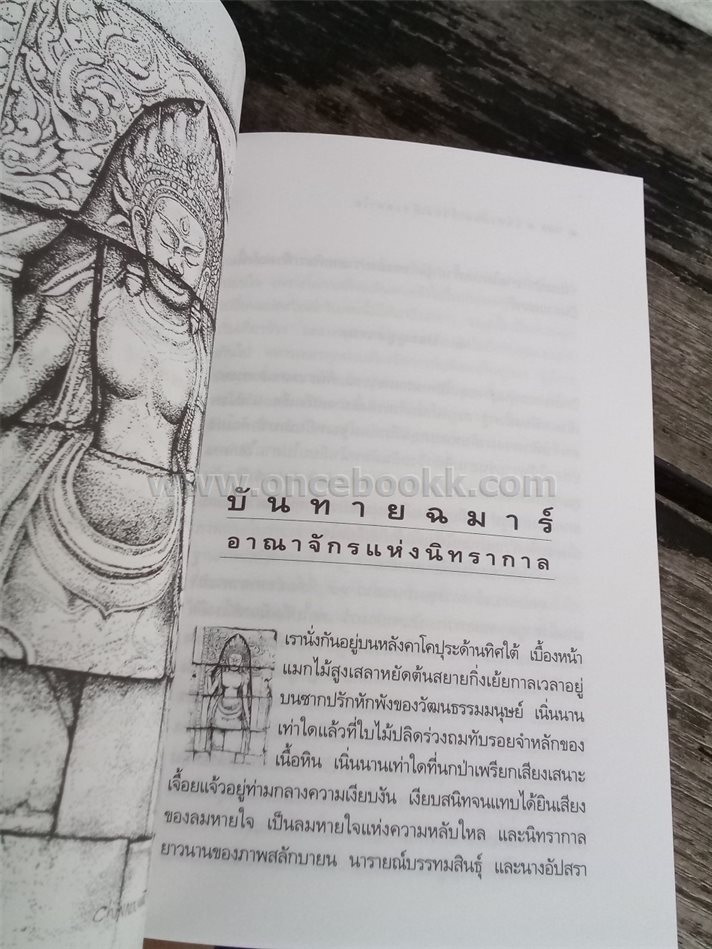 www.oncebookk.com
บันทายฉมาร์
อาณาจักรแห่งนิทรากาล
เรานั่งกันอยู่บนหลังคาโคปุระด้านทิศใต้ เบื้องหน้า
แมกไม้สูงเสลาหยัดต้นสยายกิ่งเย้ยกาลเวลาอยู่
บนซากปรักหักพังของวัฒนธรรมมนุษย์ เนิ่นนาน
เท่าใดแล้วที่ใบไม้ปลิดร่วงถมทับรอยจำหลักของ
เนื้อหิน เนิ่นนานเท่าใดที่นกป่าเพรียกเสียงเสนาะ
เจื้อยแจ้วอยู่ท่ามกลางความเงียบงัน เงียบสนิทจนแทบได้ยินเสียง
ของลมหายใจ เป็นลมหายใจแห่งความหลับใหล และนิทรากาล
ยาวนานของภาพสลักบายน นารายณ์บรรทมสินธุ์ และนางอัปสรา